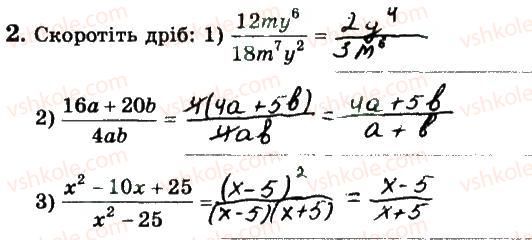 2. Скоротіть дріб: 1) 12my⁶/18m⁷y² = 2y⁴/3m⁶
2) (16a + 20b)/4ab = 4(4a + 5b)/4ab = (4a + 5b)/(a + b)
3) (x² − 10x + 25)/(x² − 25) = (x − 5)²/(x − 5)(x + 5) = (x − 5)/(x + 5)
vshkole.com